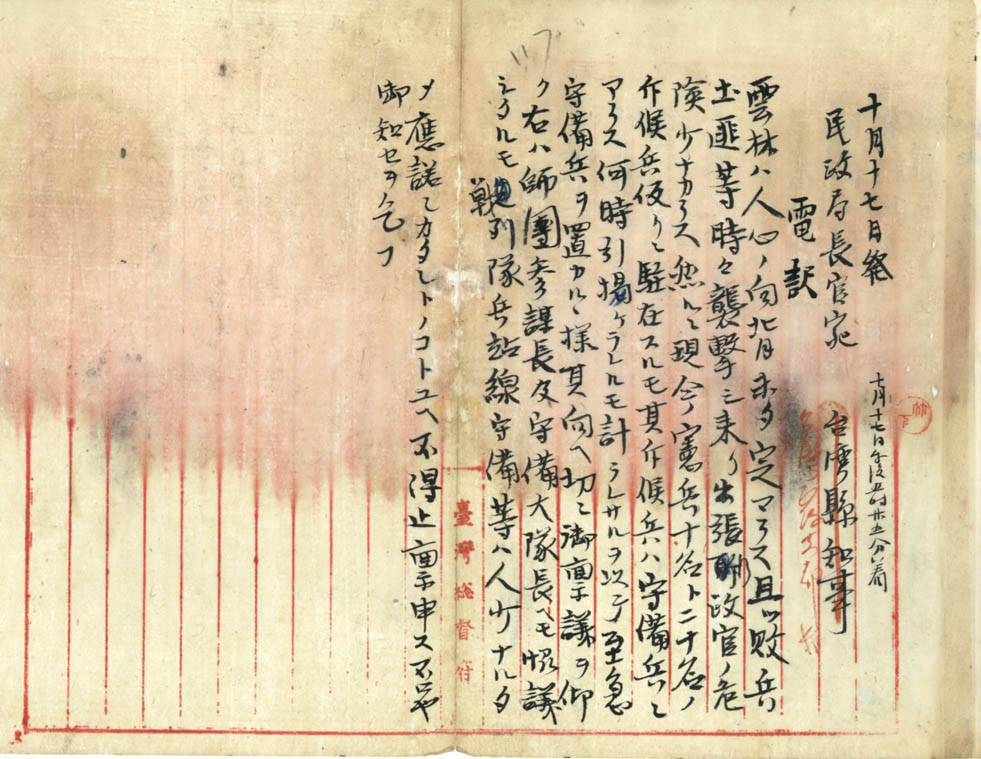 十月十七日発
十月十七日午後五時廿五分着
民政局長官宛
台湾縣知事
電訳
雲林ハ人心ノ向背未タ定マラス且ツ敗兵
土匪等時々襲撃シ来リ出張所政官ノ危
険少ナカラス然ルニ現今憲兵十名ト二十名ノ
斥候兵仮リニ駐在スルモ其斥候兵ハ守備兵ニ
アラス何時引揚ケラレルモ計ラレサルヲ以テ至急
守備兵ヲ置カルヽ様其向ヘ切ニ御稟議ヲ仰
ク右ハ師團参謀長及守備大隊長ヘモ協議
シタルモ戦列隊兵站線守備等ハ人少ナルタ
メ應諾シカタシトノコトユヘ不得止稟申ス不
御知セヲ乞フ
臺灣総督府
117